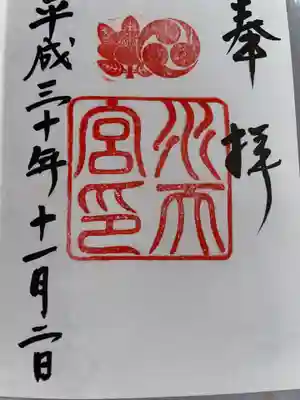 奉拝
水天宮印
平成三十年十一月二日